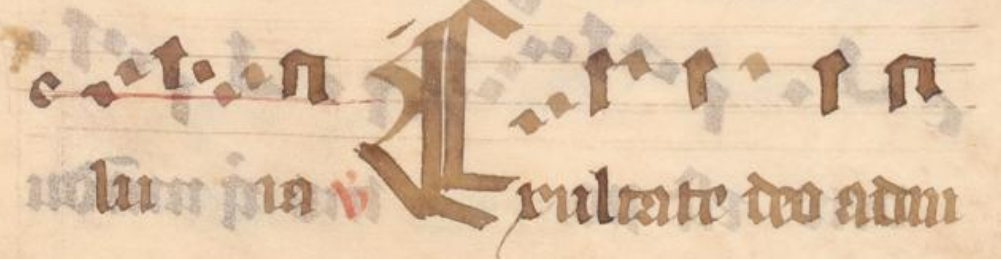 lu ia v Exultate deo adiu